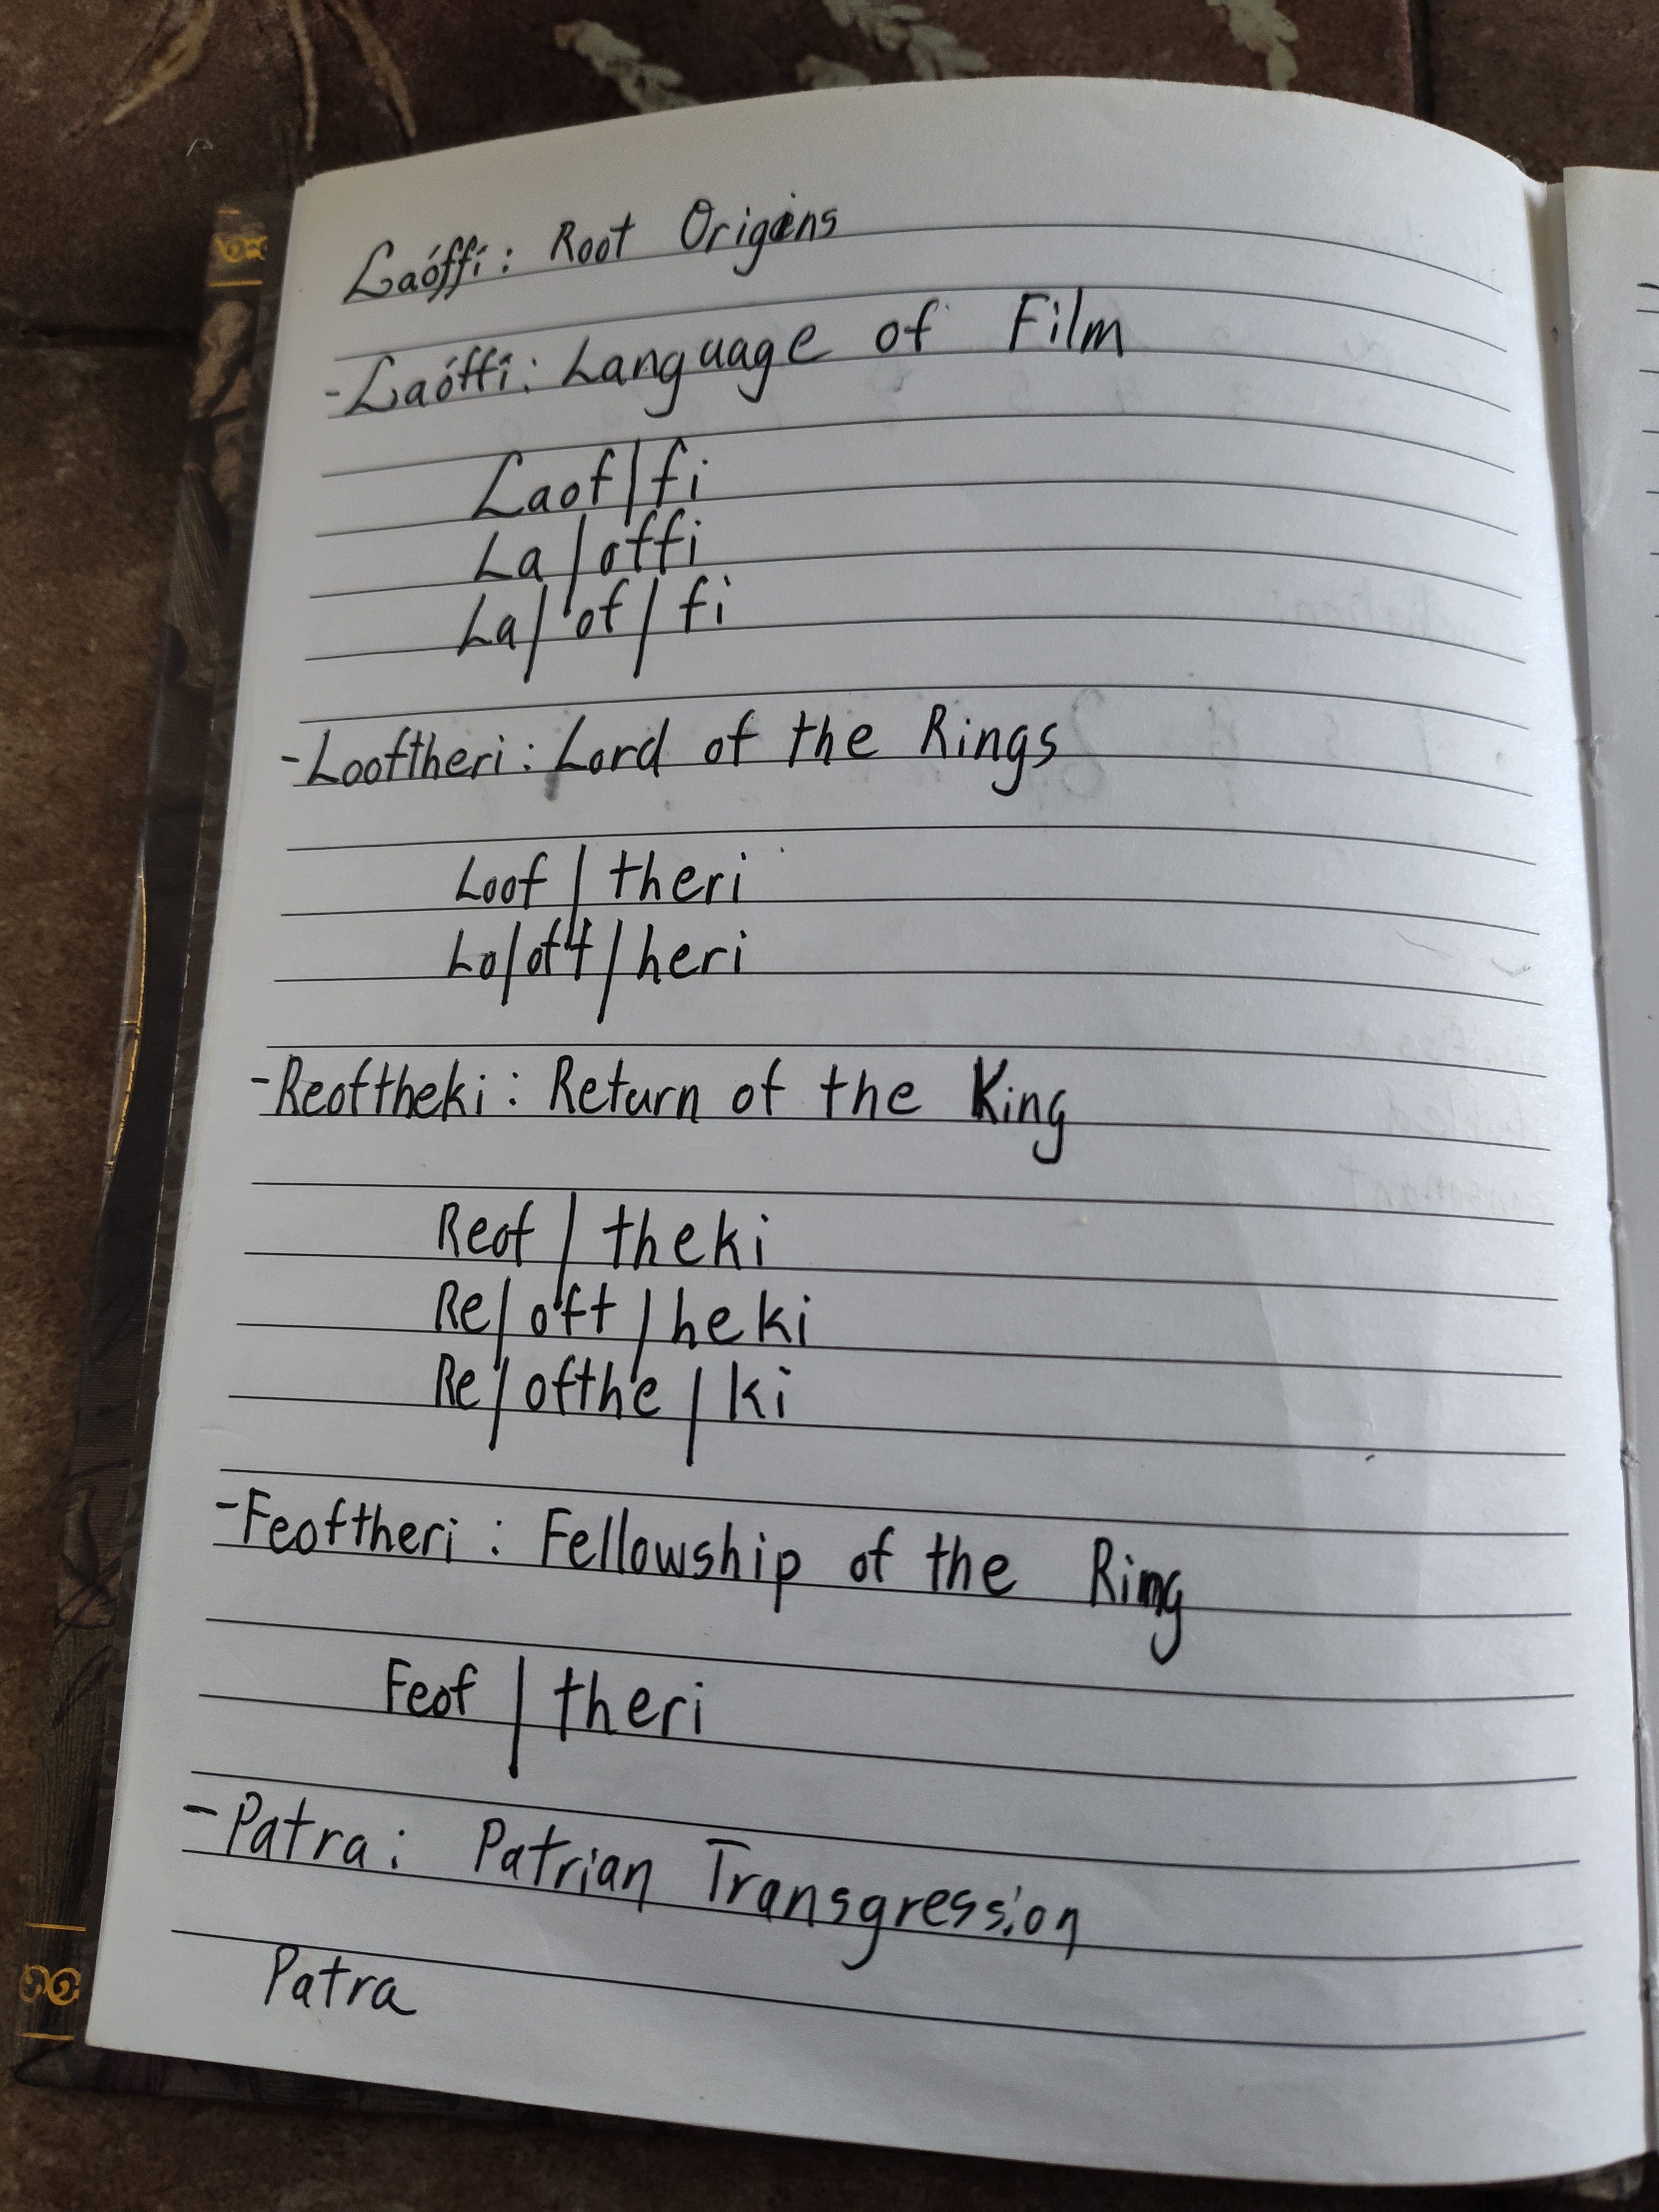 Laóffi: Root Origins
-Laóffi: Language of Film
Laof|fi
La|offi
La|of|fi
-Looftheri: Lord of the Rings
Loof|theri
Lo|oft|heri
-Reoftheki: Return of the King
Reof|theki
Re|oft|heki
Re|ofthe|ki
-Feoftheri: Fellowship of the Ring
Feof|theri
-Patra: Patrian Transgression
Patra